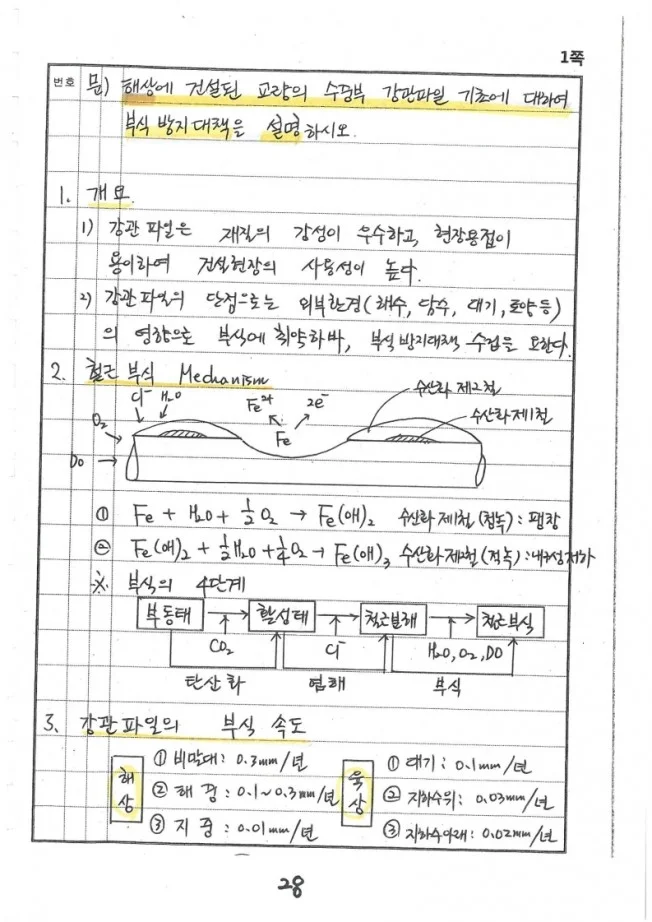 1쪽
번호 문) 해상에 건설된 교량의 수중부 강관파일 기초에 대하여
부식 방지대책을 설명하시오.
1. 개요.
1) 강관 파일은 재질의 강성이 우수하고, 현장용접이
용이하여 건설현장의 사용성이 높다.
2) 강관파일의 단점으로는 외부환경(해수, 담수, 대기, 토양 등)
의 영향으로 부식에 취약하바, 부식방지대책 수립을 요한다.
2. 철근 부식 Mechanism
Cl⁻ H₂O Fe²⁺ 2e⁻ 수산화 제2철
O₂ Fe 수산화제1철
DO
① Fe + H₂O + ½O₂ → Fe(OH)₂ 수산화제1철(점녹) : 팽창
② Fe(OH)₂ + ½H₂O + ¼O₂ → Fe(OH)₃ 수산화제2철(적녹) : 내구성저하
※ 부식의 4단계
부동태 활성태 철근분해 철근부식
CO₂ Cl⁻ H₂O, O₂, DO
탄산화 염해 부식
3. 강관파일의 부식 속도
해상 ① 비말대 : 0.3mm/년 육상 ① 대기 : 0.1mm/년
② 해중 : 0.1~0.3mm/년 ② 지하수위 : 0.03mm/년
③ 지중 : 0.01mm/년 ③ 지하수아래 : 0.02mm/년
28